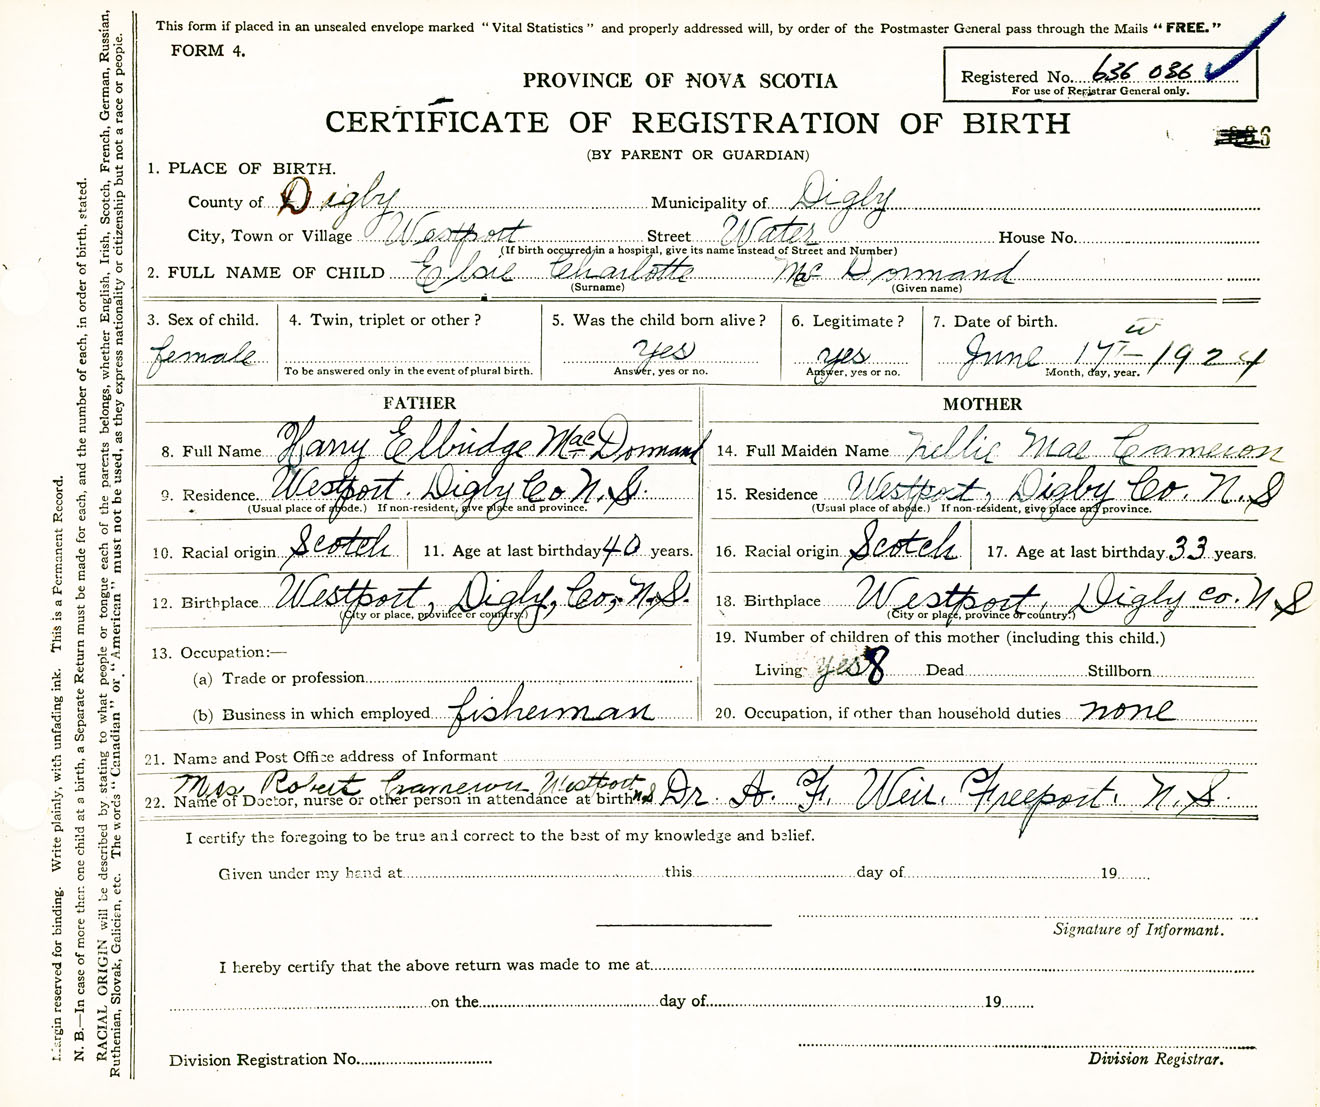 This form if placed in an unsealed envelope marked "Vital Statistics" and properly addressed will, by order of the Postmaster General pass through the Mails "FREE."
FORM 4.
Registered No. 636 036
For use of Registrar General only.
PROVINCE OF NOVA SCOTIA
CERTIFICATE OF REGISTRATION OF BIRTH
(BY PARENT OR GUARDIAN)
1. PLACE OF BIRTH.
County of Digby Municipality of Digby
City, Town or Village Westport Street Water House No.
(If birth occurred in a hospital, give its name instead of Street and Number)
2. FULL NAME OF CHILD Elsie Charlotte MacDormand
(Surname) (Given name)
3. Sex of child. 4. Twin, triplet or other? 5. Was the child born alive? 6. Legitimate? 7. Date of birth.
female yes yes June 17 - 1924
To be answered only in the event of plural birth. Answer, yes or no. Answer, yes or no. Month, day, year.
FATHER MOTHER
8. Full Name Harry Elbridge MacDormand 14. Full Maiden Name Nellie Mae Cameron
9. Residence. Westport. Digby Co N.S. 15. Residence Westport, Digby Co. N.S
(Usual place of abode.) If non-resident, give place and province. (Usual place of abode.) If non-resident, give place and province.
10. Racial origin Scotch 11. Age at last birthday 40 years. 16. Racial origin Scotch 17. Age at last birthday 33 years.
12. Birthplace Westport, Digby, Co, N.S. 18. Birthplace Westport, Digby Co. N S
(City or place, province or country.) (City or place, province or country.)
13. Occupation:— 19. Number of children of this mother (including this child.)
(a) Trade or profession Living yes 8 Dead Stillborn
(b) Business in which employed fisherman 20. Occupation, if other than household duties none
21. Name and Post Office address of Informant
Mrs Robert Cameron Westport N.S
22. Name of Doctor, nurse or other person in attendance at birth Dr. A. F. Weir. Freeport. N.S.
I certify the foregoing to be true and correct to the best of my knowledge and belief.
Given under my hand at this day of 19
Signature of Informant.
I hereby certify that the above return was made to me at
on the day of 19
Division Registration No.
Division Registrar.
Margin reserved for binding. Write plainly, with unfading ink. This is a Permanent Record.
N. B.—In case of more than one child at a birth, a Separate Return must be made for each, and the number of each, in order of birth, stated.
RACIAL ORIGIN will be described by stating to what people or tongue each of the parents belongs, whether English, Irish, Scotch, French, German, Russian,
Ruthenian, Slovak, Galicien, etc. The words "Canadian" or "American" must not be used, as they express nationality or citizenship but not a race or people.